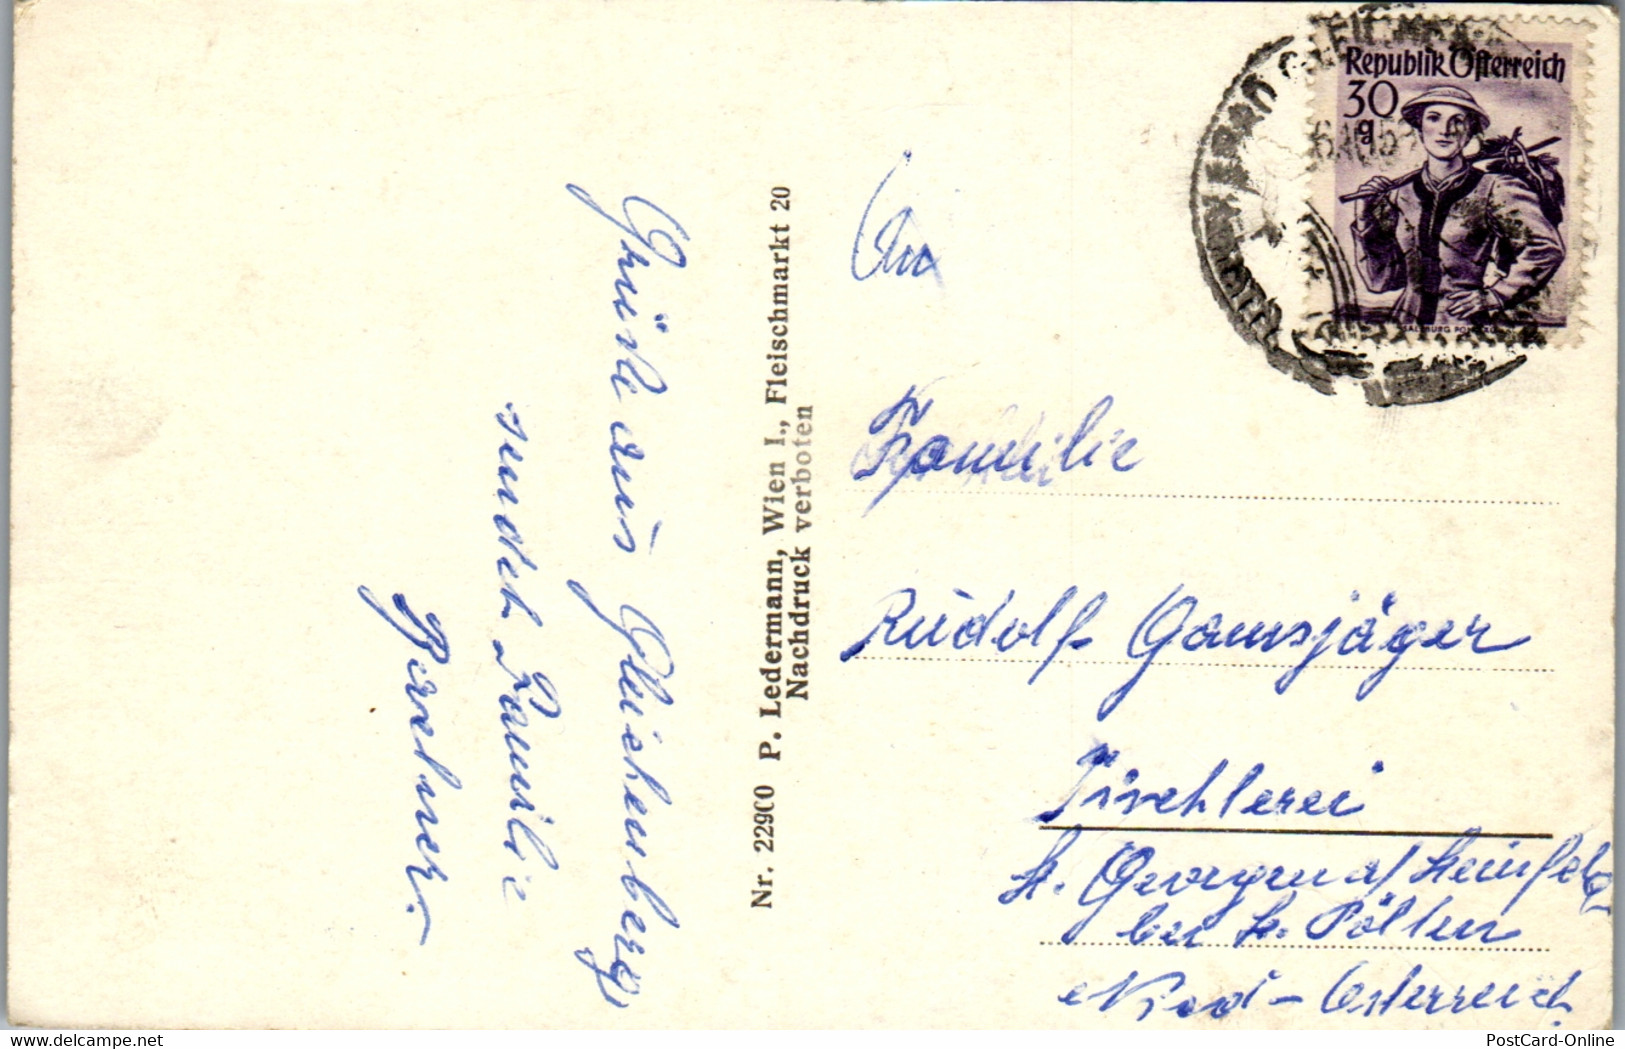 Grüße aus Gleichenberg
sendet Familie
P. Ledermann, Wien I., Fleischmarkt 20
Nr. 22900
Nachdruck verboten
BAD GLEICHENBERG
Republik Österreich
30
g
SALZBURG PONGAU
An
Familie
Rudolf Gamsjäger
Tischlerei
St. Georgen a/ Steinfeld
bei St. Pölten
Nied-Österreich
PostCard-Online